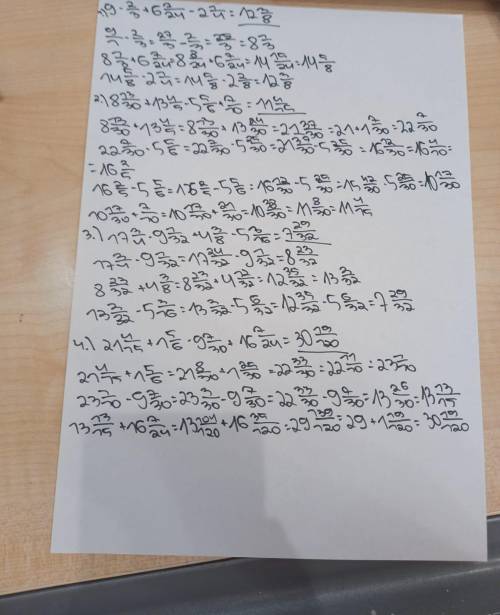 1.) 9 - 2/3 + 6 7/24 - 2 1/4 = 12 3/8
9/1 - 2/3 = 27/3 - 2/3 = 25/3 = 8 1/3
8 1/3 + 6 7/24 = 8 8/24 + 6 7/24 = 14 15/24 = 14 5/8
14 5/8 - 2 1/4 = 14 5/8 - 2 2/8 = 12 3/8
2.) 8 13/30 + 13 4/5 - 5 5/6 + 7/10 = 11 4/15
8 13/30 + 13 4/5 = 8 13/30 + 13 24/30 = 21 37/30 = 21 + 1 7/30 = 22 7/30
22 7/30 - 5 5/6 = 22 7/30 - 5 25/30 = 21 37/30 - 5 25/30 = 16 12/30 = 16 4/10 =
= 16 2/5
16 2/5 - 5 5/6 = 16 2/5 - 5 5/6 = 16 12/30 - 5 25/30 = 15 42/30 - 5 25/30 = 10 17/30
10 17/30 + 7/10 = 10 17/30 + 21/30 = 10 38/30 = 11 8/30 = 11 4/15
3.) 17 3/4 - 9 1/32 + 4 3/8 - 5 3/16 = 7 29/32
17 3/4 - 9 1/32 = 17 24/32 - 9 1/32 = 8 23/32
8 23/32 + 4 3/8 = 8 23/32 + 4 12/32 = 12 35/32 = 13 3/32
13 3/32 - 5 3/16 = 13 3/32 - 5 6/32 = 12 35/32 - 5 6/32 = 7 29/32
4.) 21 4/15 + 1 5/6 - 9 7/30 + 16 7/24 = 30 19/120
21 4/15 + 1 5/6 = 21 8/30 + 1 25/30 = 22 33/30 = 22 11/10 = 23 1/10
23 1/10 - 9 7/30 = 23 3/30 - 9 7/30 = 22 33/30 - 9 7/30 = 13 26/30 = 13 13/15
13 13/15 + 16 7/24 = 13 104/120 + 16 35/120 = 29 139/120 = 29 + 1 19/120 = 30 19/120